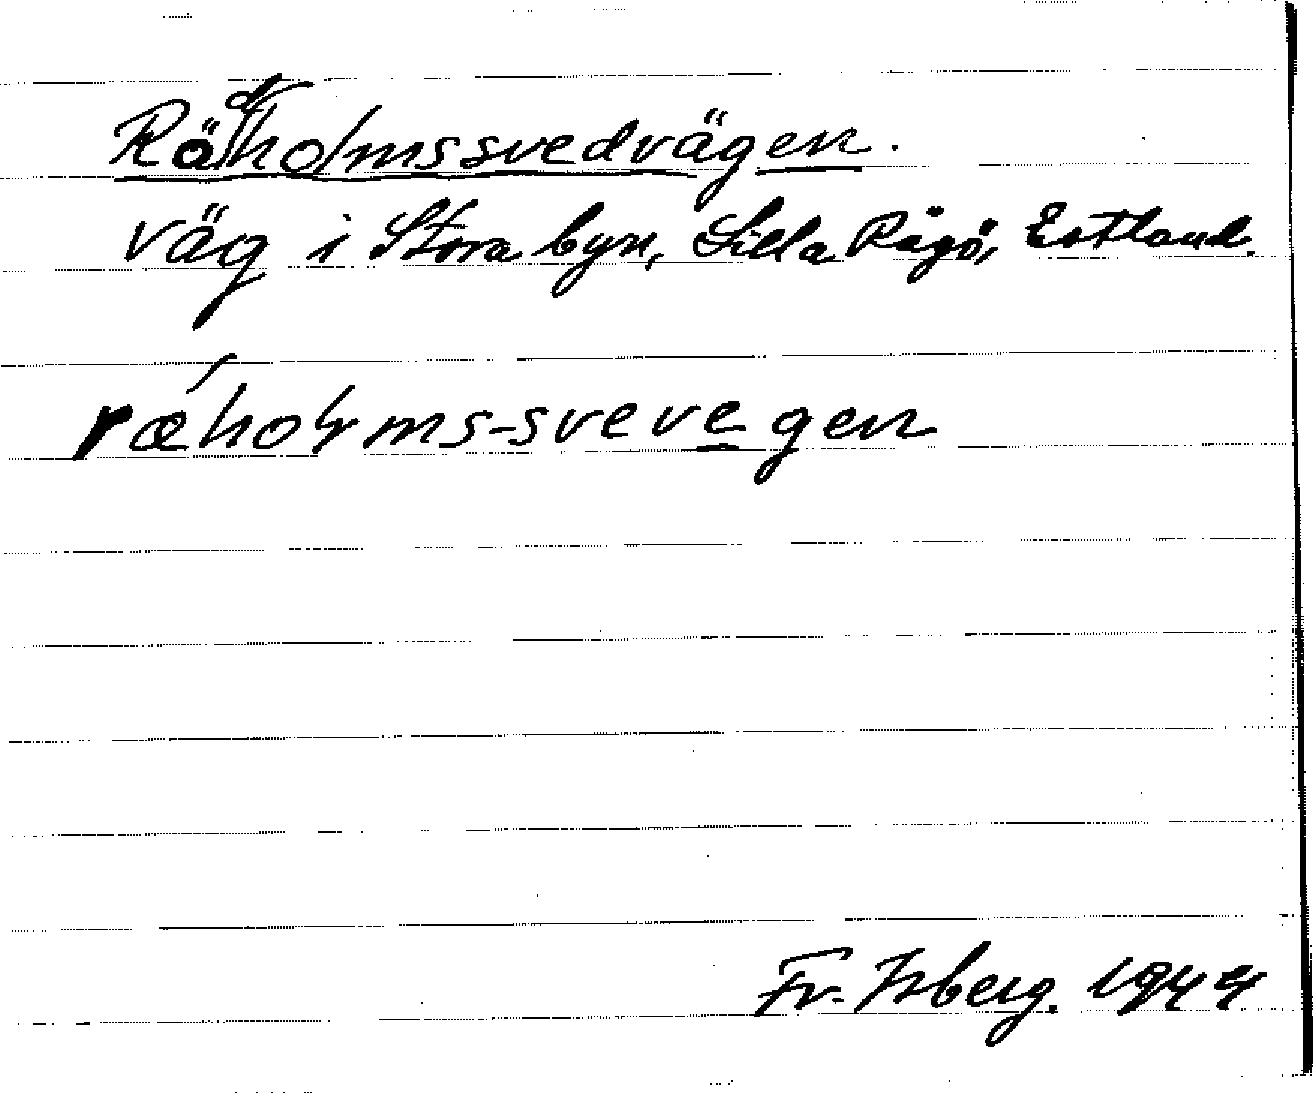 Rödholmssvedvägen.
väg i Stora byn, Lilla Rågö, Estland.
ræ´holms-svevegen
Fr. Isberg. 1944